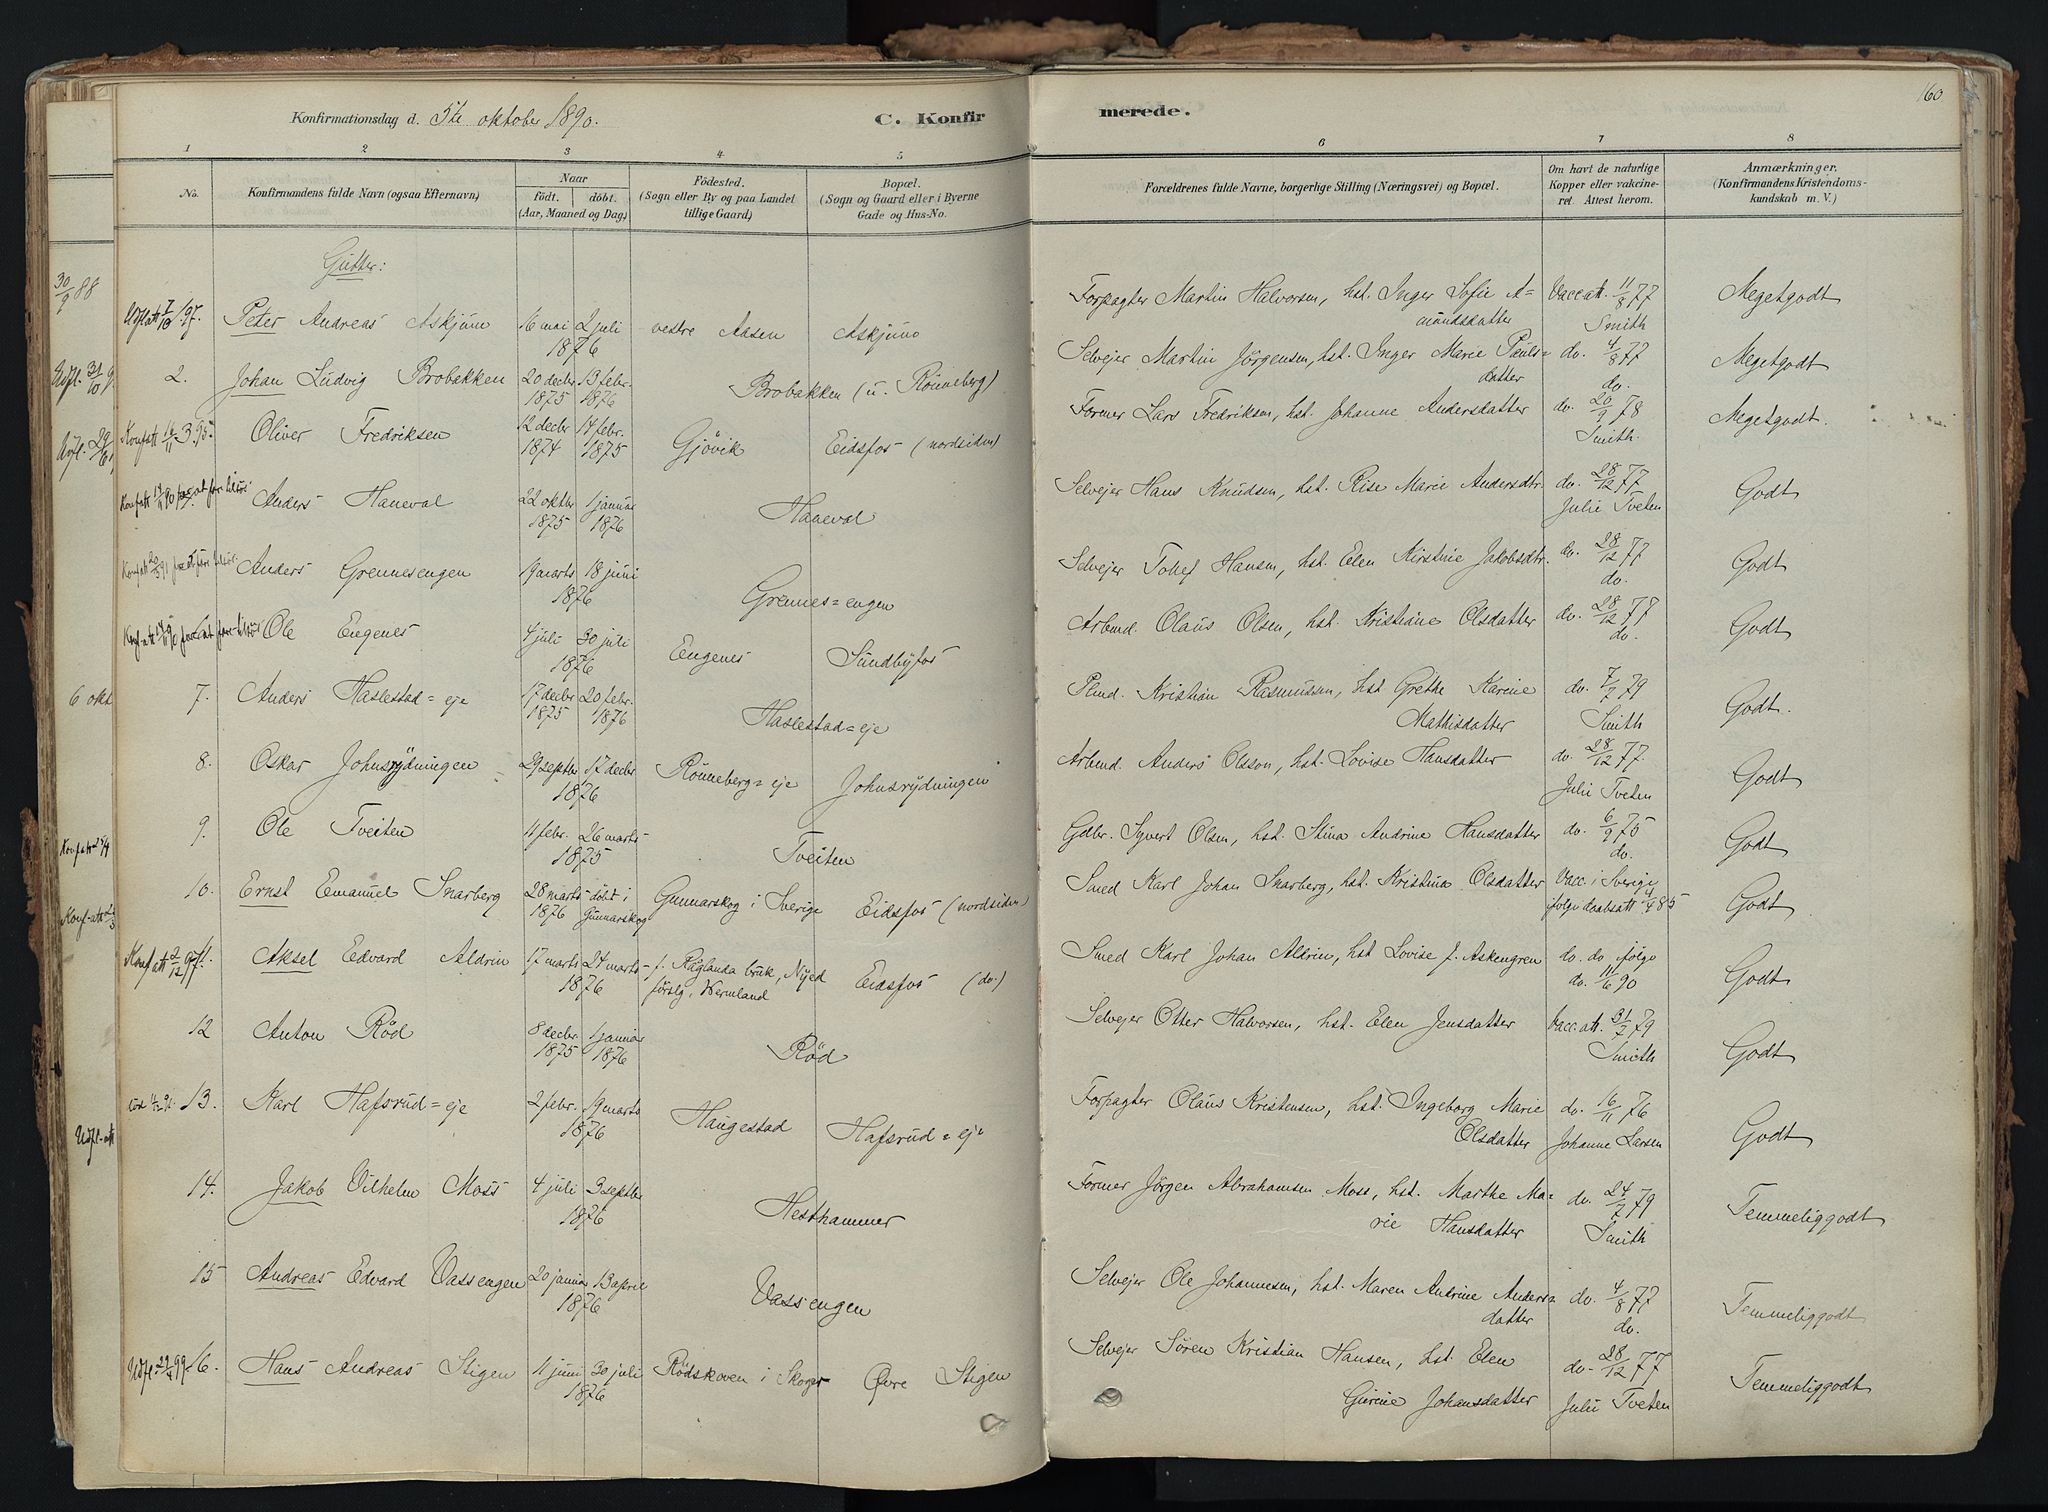 Konfirmationsdag d. 5te oktober 1890. C. Konfirmerede. 160
1 2 3 4 5 6 7 8
No. Konfirmandens fulde Navn (ogsaa Efternavn) Naar født. døbt. (Aar, Maaned og Dag) Fødested. (Sogn eller By og paa Landet tillige Gaard) Bopæl. (Sogn og Gaard eller i Byerne Gade og Hus-No. Forældrenes fulde Navne, borgerlige Stilling (Næringsvei) og Bopæl. Om havt de naturlige Kopper eller vakcineret. Attest herom. Anmærkninger. (Konfirmandens Kristendomskundskab m. V.)
30/9 88
Gutter:
Udflatt 7/10 97. Peter Andreas Askjum 16 mai 2 juli 1876 vestre Aasen Askjum Forpagter Martin Halvorsen, hst. Inger Sofie Amundsdatter Vacc.att. 11/8 77 Smith Megetgodt
2. Johan Ludvig Brobakken 20 decbr 1875 13 febr. 1876 Brobakken (u. Rönneberg) Selvejer Martin Jörgensen, hst. Inger Marie Paulsdatter do. 4/8 77 do. Megetgodt
Konfatt 3. Oliver Fredriksen 12 decbr 1874 14 febr. 1875 Gjövik Eidsfos (nordsiden) Former Lars Fredriksen, hst. Johanne Andersdatter do. 20/9 78 Smith. Megetgodt.
Anders Haneval 22 oktbr 1875 1 januar 1876 Haneval Selvejer Hans Knudsen, hst. Rise Marie Andersdtr. do. 28/12 77 Julie Tveten Godt
Anders Grennesengen 19 marts 18 juni 1876 Grennes=engen Selvejer Tollef Hansen, hst. Elen Kirstine Jakobsdtr. do. 28/12 77 do. Godt
Ole Engenes 4 juli 30 juli 1876 Engenes Sundbyfos Arbmd. Olaus Olsen, hst. Kristiane Olsdatter do. 28/12 77 do. Godt
6 okt
7. Anders Haslestad=eje 17 decbr 1875 20 febr. 1876 Haslestad=eje Plmd. Kristian Rasmussen, hst Grethe Karine Mathisdatter do. 7/7 79 Smith Godt.
8. Oskar Johnsrydningen 29 septbr 17 decbr 1876 Rönneberg=eje Johnsrydningen Arbmd. Anders Olsson, hst. Lovise Hansdatter do. 28/12 77. Julie Tveten Godt
9. Ole Tveiten 11 febr. 26 marts 1875 Tveiten Gdbr. Syvert Olsen, hst. Stina Andrine Hansdatter do. 6/9 75 do. Godt
10. Ernst Emanuel Snarberg 28 marts 1876 döbt i Gunnarskog Gunnarskog i Sverige Eidsfos (nordsiden) Smed Karl Johan Snarberg, hst. Kristina Olsdatter Vacc. i Sverige följe daabsatt 4/4 85 Godt
Konfatt 2/12 97. Aksel Edvard Aldrin 17 marts 24 marts 1876 f. Råglanda bruk, Nyed förslg, Wermland Eidsfos (do.) Smed Karl Johan Aldrin, hst Lovise f. Askengren do. do. följe do. 11/6 90 Godt
12 Anton Röd 8 decbr. 1875 1 januar 1876 Röd Selvejer Otter Halvorsen, hst. Elen Jensdatter Vacc.att. 31/7 79 Smith Godt
13. Karl Hafsrud=eje 2 febr. 19 marts 1876 Haugestad Hafsrud=eje Forpagter Olaus Kristensen, hst. Ingeborg Marie Olsdatter do. 16/11 76 Johanne Larsen Godt
Udfl-att
14. Jakob Vilhelm Moss 4 juli 3 septbr 1876 Hesthammer Former Jörgen Abrahamsen Moss, hst. Marthe Marie Hansdatter do. 24/7 79 Smith Temmeliggodt
15 Andreas Edvard Vassengen 20 januar 13 april 1876 Vassengen Selvejer Ole Johannesen, hst. Maren Andrine Andersdatter do. 4/8 77 do. Temmeliggodt
Udfl. 16. Hans Andreas Stigen 11 juni 30 juli 1876 Rödskoven i Skoger Övre Stigen Selvejer Sören Kristian Hansen, hst. Elen Gurine Johansdatter do. 28/12 77 Julie Tveten Temmeliggodt